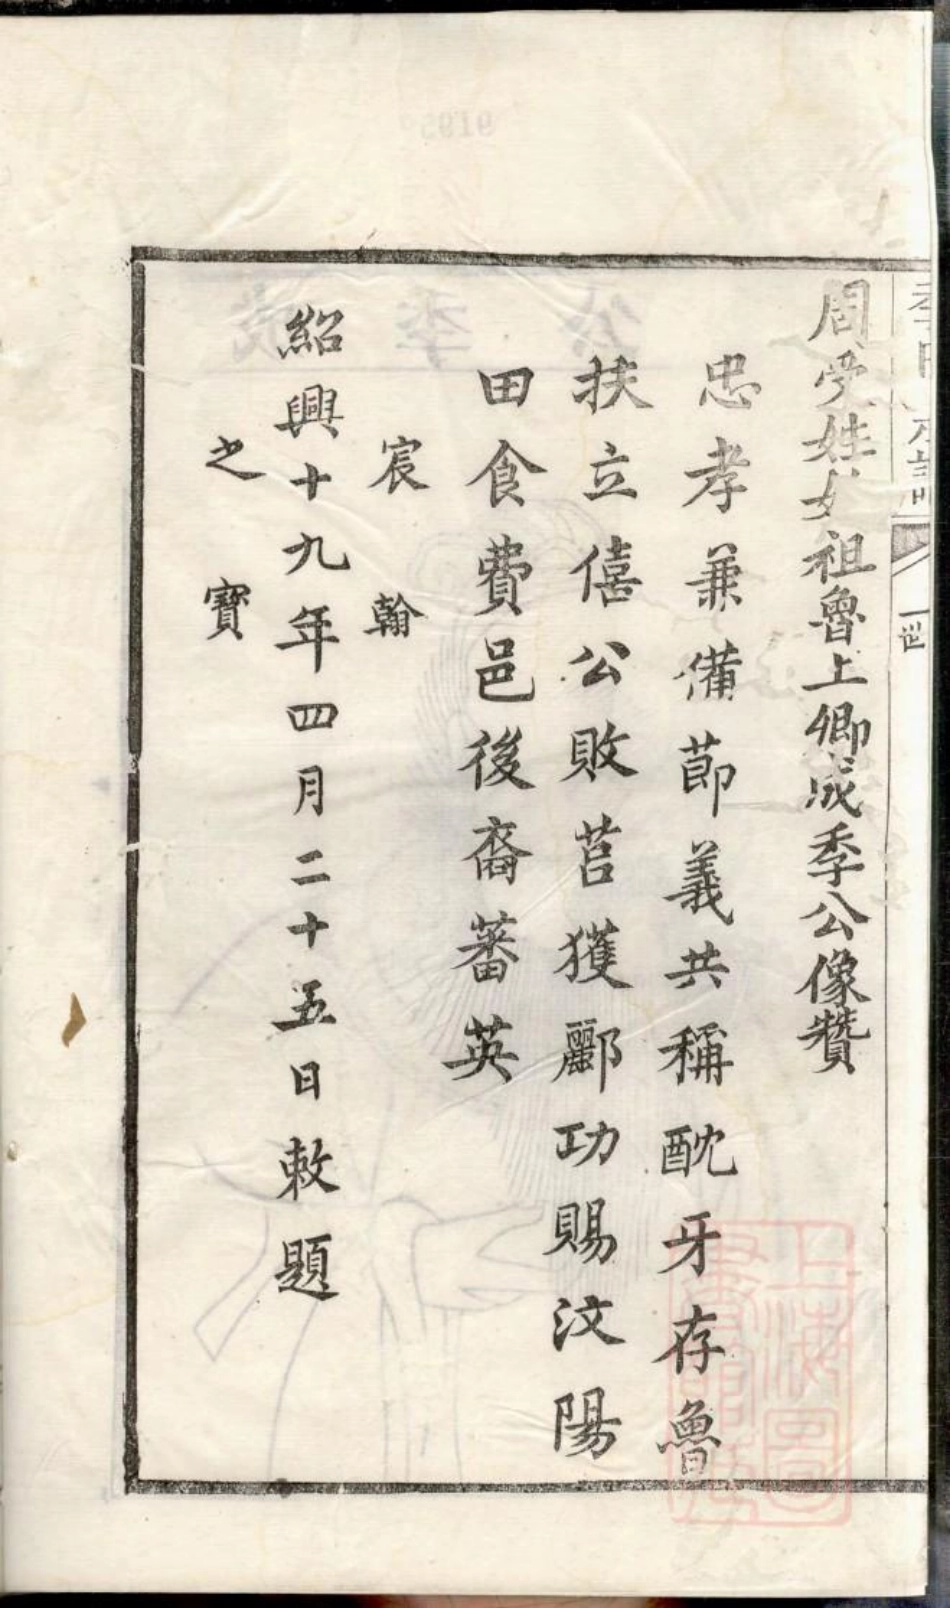 周受姓始祖魯上卿成季公像贊
忠孝兼備節義共稱酖牙存魯
扶立僖公敗莒獲酈功賜汶陽
田食費邑後裔蕃英
宸翰
紹興十九年四月二十五日敕題
之寶
一世
上海圖書館藏